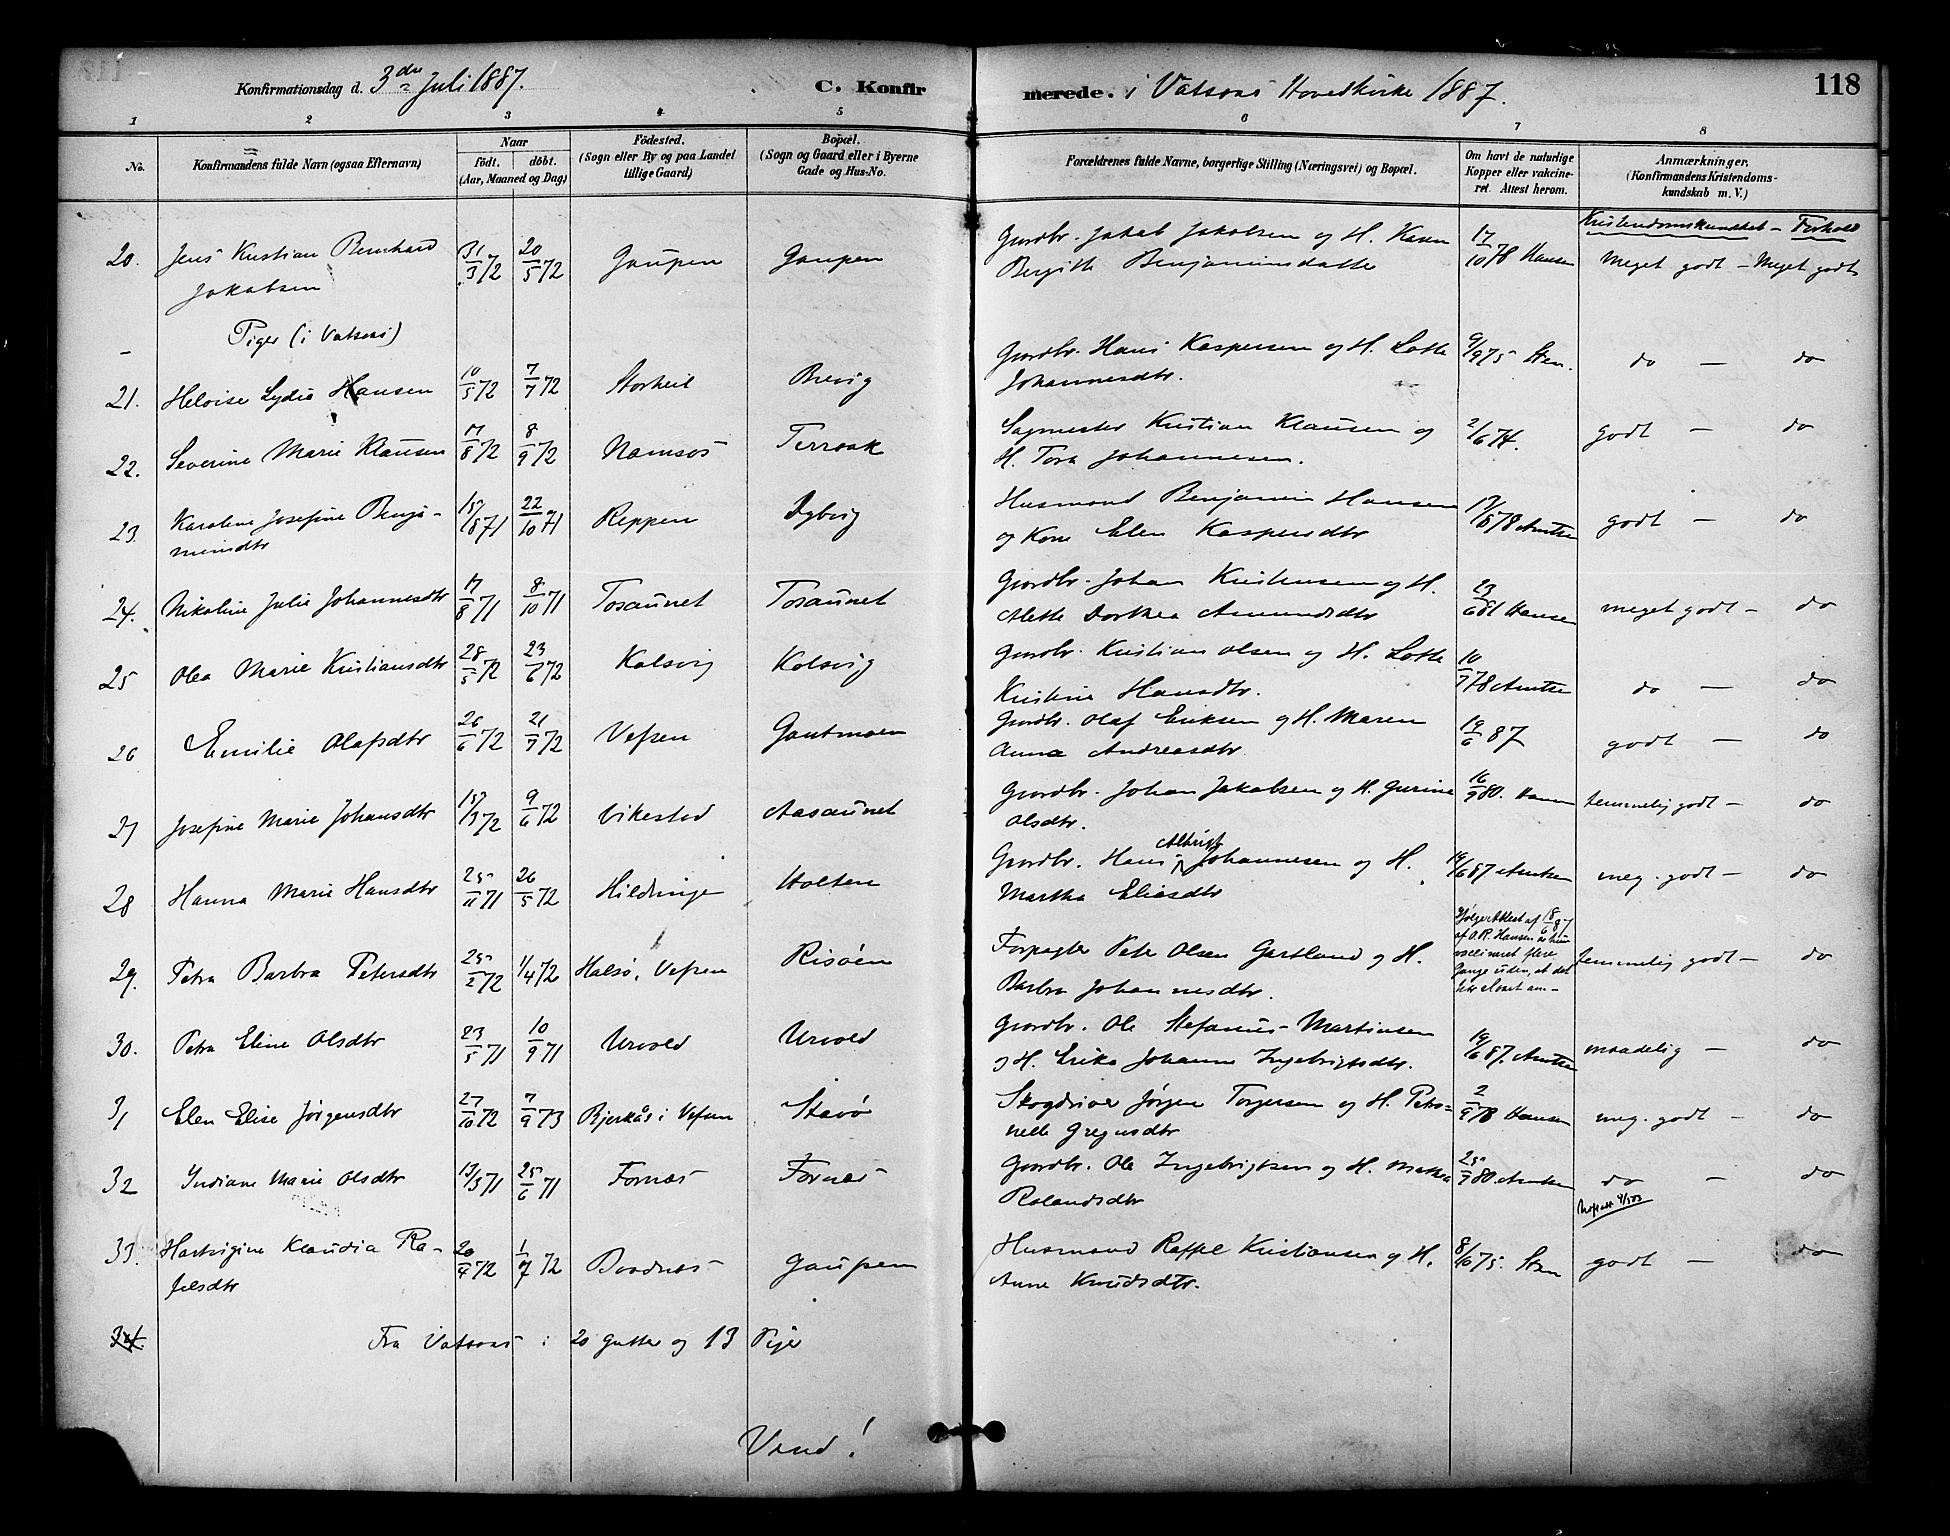 Konfirmationsdag d. 3die Juli 1887. C. Konfirmerede. i Vatsaas Hovedkirke 1887. 118
1 2 3 4 5 6 7 8
No. Konfirmandens fulde Navn (ogsaa Efternavn) Naar født. døbt. (Aar, Maaned og Dag) Fødested. (Sogn eller By og paa Landet tillige Gaard) Bopæl. (Sogn og Gaard eller i Byerne Gade og Hus-No. Forældrenes fulde Navne, borgerlige Stilling (Næringsvei) og Bopæl. Om havt de naturlige Kopper eller vakcineret. Attest herom. Anmærkninger. (Konfirmandens Kristendomskundskab m. V.)
Kristendomskundskab – Forhold
20. Jens Kristian Bernhard Jakobsen 31/3 72 20/5 72 Gaupen Gaupen Gardbr. Jakob Jakobsen og H. Karen Bergitte Benjaminsdatte 17/10 78 Hansen Meget godt – Meget godt
– Piger (i Vatsaas)
21. Heloise Lydia Hansen 10/5 72 7/7 72 Storheil Brevig Gardbr. Hans Kaspersen og H. Lotte Johannesdtr. 9/9 75 Sten. do – do
22. Severine Marie Klausen 17/8 72 8/9 72 Namsos Terraak Sagmester Kristian Klausen og H. Tora Johannesen. 2/6 74. godt – do
23. Karoline Josefine Benjaminsdtr 15/8 71 22/10 71 Reppen Dybvig Husmand Benjamin Hansen og Kone Elen Kaspersdtr 17/8 78 Arntsen godt – do
24. Nikoline Julie Johannesdtr 17/8 71 8/10 71 Tosaunet Tosaunet Gardbr. Johan Kristensen og H. Alette Dorthea Amundsdtr 23/6 81 Hansen meget godt – do
25 Olea Marie Kristiansdtr 28/5 72 23/6 72 Kalsvig Kalsvig Gardbr. Kristian Olsen og H. Lotte Kristine Hansdtr. 10/7 78 Arntsen do – do
26 Emilie Olafsdtr 26/6 72 21/7 72 Vefsen Gautmoen Gardbr. Olaf Eriksen og H. Maren Anna Andreasdtr. 19/6 87 godt – do
27 Josefine Marie Johansdtr 15/3 72 9/6 72 Vikestad Aasaunet Gardbr. Johan Jakobsen og H. Gurine Olsdtr. 16/9 80. Hansen temmelig godt – do
28 Hanna Marie Hansdtr 25/11 71 26/5 72 Hildringe Holten Gardbr. Hans Albrigt Johannesen og H. Martha Eliasdtr 19/6 87 Arntsen meg. godt – do
29. Petra Barbra Petersdtr 25/2 72 1/4 72 Halsø, Vefsen Risøen Forpagter Peter Olsen Gartland og H. Barbra Johannesdtr. Ifølge Attest af 18/6 87 af O.R. Hansen er hun vaccineret flere Gange uden, at det har slaaet an – temmelig godt – do
30. Petra Eline Olsdtr 23/5 71 10/9 71 Urvold Urvold Gardbr. Ole Stefanus Martinsen og H. Erika Johanna Ingebrigtsdtr. 19/6 87. Arntsen maadelig – do
31 Elen Elise Jørgensdtr 27/10 72 7/9 73 Bjerkås i Vefsen Stavø Skogdriver Jørgen Torgersen og H. Petronelle Gregusdtr 2/9 78 Hansen meg. godt – do
32 Indiane Marie Olsdtr 13/3 71 25/6 71 Fornæs Fornæs Gardbr. Ole Ingebrigtsen og H. Mekka Rolandsdtr 25/9 80 Arntsen do – do
33. Hartvigine Klaudia Rafelsdtr 20/4 72 1/7 72 Bordnæs Gaupen Husmand Raffel Kristiansen og H. Anne Knudsdtr. 8/6 75. Sten godt – do
34. Fra Vatsaas : 20 Gutter og 13 Piger
Vend!